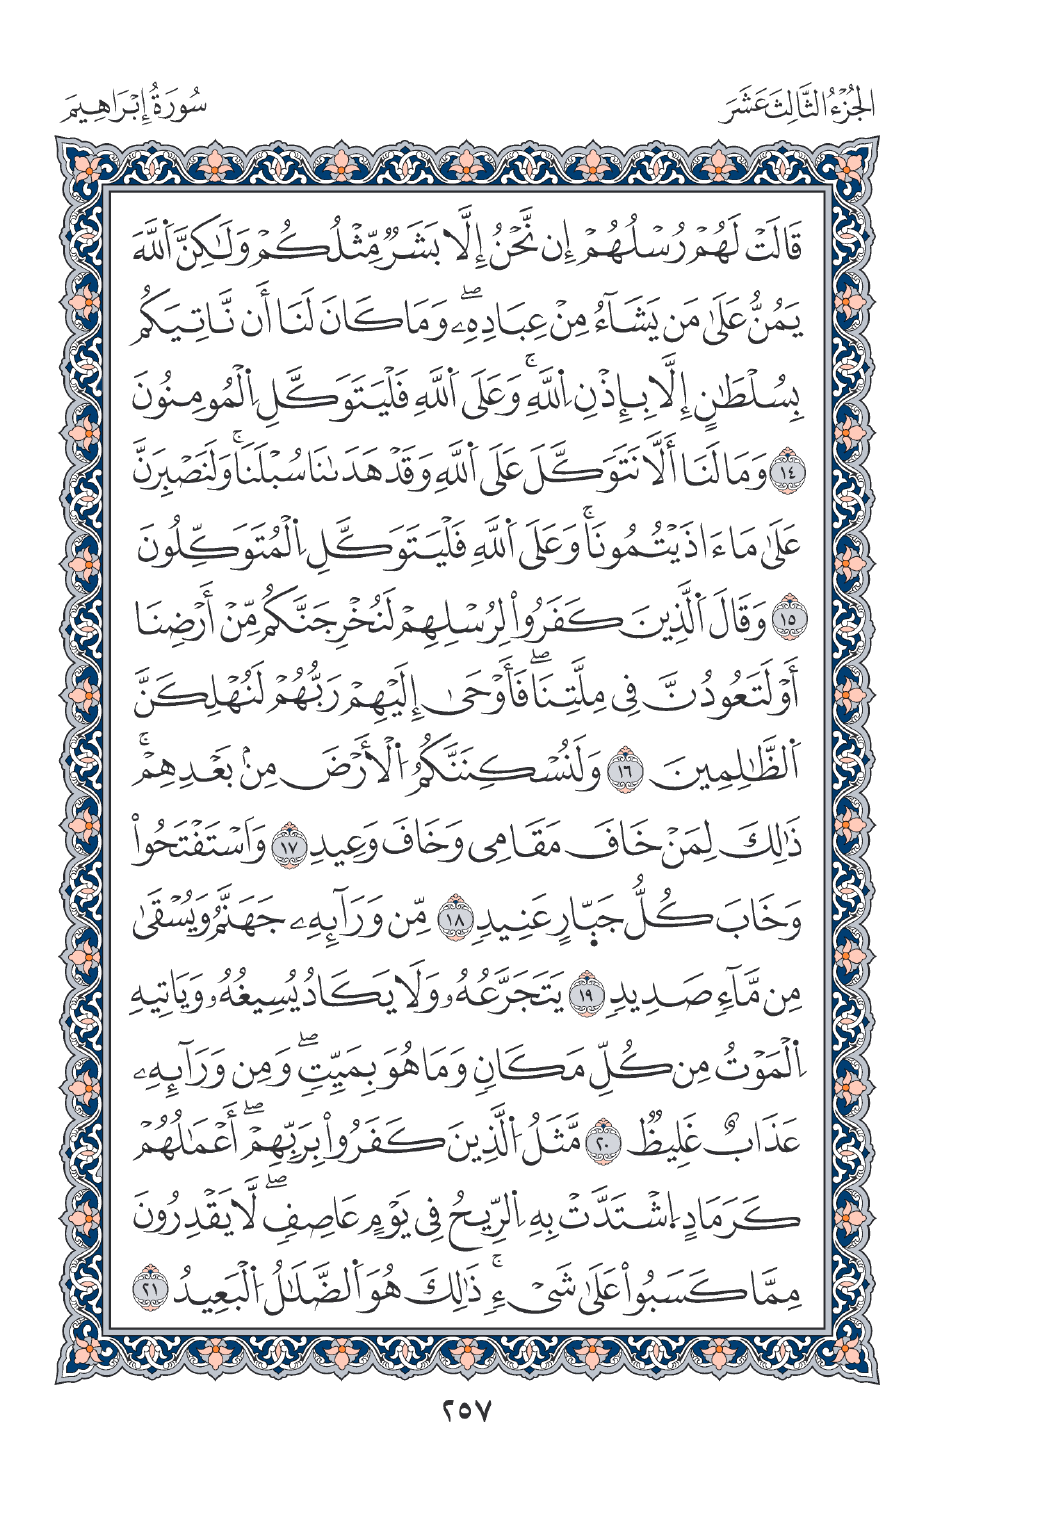 الجُزْءُ الثَّالِثَ عَشَرَ
سُورَةُ إِبْرَاهِيمَ
قَالَتْ لَهُمْ رُسْلُهُمْ إِن نَّحْنُ إِلَّا بَشَرٌ مِّثْلُكُمْ وَلَٰكِنَّ اَ۬للَّهَ
يَمُنُّ عَلَىٰ مَن يَشَآءُ مِنْ عِبَادِهِۦۖ وَمَا كَانَ لَنَا أَن نَّاتِيَكُم
بِسُلْطَٰنٍ إِلَّا بِإِذْنِ اِ۬للَّهِۚ وَعَلَى اَ۬للَّهِ فَلْيَتَوَكَّلِ اِ۬لْمُومِنُونَ
١٤ وَمَا لَنَا أَلَّا نَتَوَكَّلَ عَلَى اَ۬للَّهِ وَقَدْ هَدَىٰنَا سُبْلَنَاۚ وَلَنَصْبِرَنَّ
عَلَىٰ مَا ءَاذَيْتُمُونَاۚ وَعَلَى اَ۬للَّهِ فَلْيَتَوَكَّلِ اِ۬لْمُتَوَكِّلُونَ
١٥ وَقَالَ اَ۬لَّذِينَ كَفَرُواْ لِرُسْلِهِمْ لَنُخْرِجَنَّكُم مِّنْ أَرْضِنَا
أَوْ لَتَعُودُنَّ فِي مِلَّتِنَاۖ فَأَوْحَىٰ إِلَيْهِمْ رَبُّهُمْ لَنُهْلِكَنَّ
اَ۬لظَّٰلِمِينَ ١٦ وَلَنُسْكِنَنَّكُمُ اُ۬لْأَرْضَ مِنۢ بَعْدِهِمْۚ
ذَٰلِكَ لِمَنْ خَافَ مَقَامِي وَخَافَ وَعِيدِ ١٧ وَاَسْتَفْتَحُواْ
وَخَابَ كُلُّ جَبّ۪ارٍ عَنِيدٖ ١٨ مِّن وَرَآئِهِۦ جَهَنَّمُ وَيُسْقَىٰ
مِن مَّآءٖ صَدِيدٖ ١٩ يَتَجَرَّعُهُۥ وَلَا يَكَادُ يُسِيغُهُۥ وَيَاتِيهِ
اِ۬لْمَوْتُ مِن كُلِّ مَكَانٖ وَمَا هُوَ بِمَيِّتٖۖ وَمِن وَرَآئِهِۦ
عَذَابٌ غَلِيظٞ ٢٠ مَّثَلُ اُ۬لَّذِينَ كَفَرُواْ بِرَبِّهِمْۖ أَعْمَٰلُهُمْ
كَرَمَادٍ اِ۪شْتَدَّتْ بِهِ اِ۬لرِّيحُ فِي يَوْمٍ عَاصِفٖۖ لَّا يَقْدِرُونَ
مِمَّا كَسَبُواْ عَلَىٰ شَيْءٖۚ ذَٰلِكَ هُوَ اَ۬لضَّلَٰلُ اُ۬لْبَعِيدُ ٢١
٢٥٧